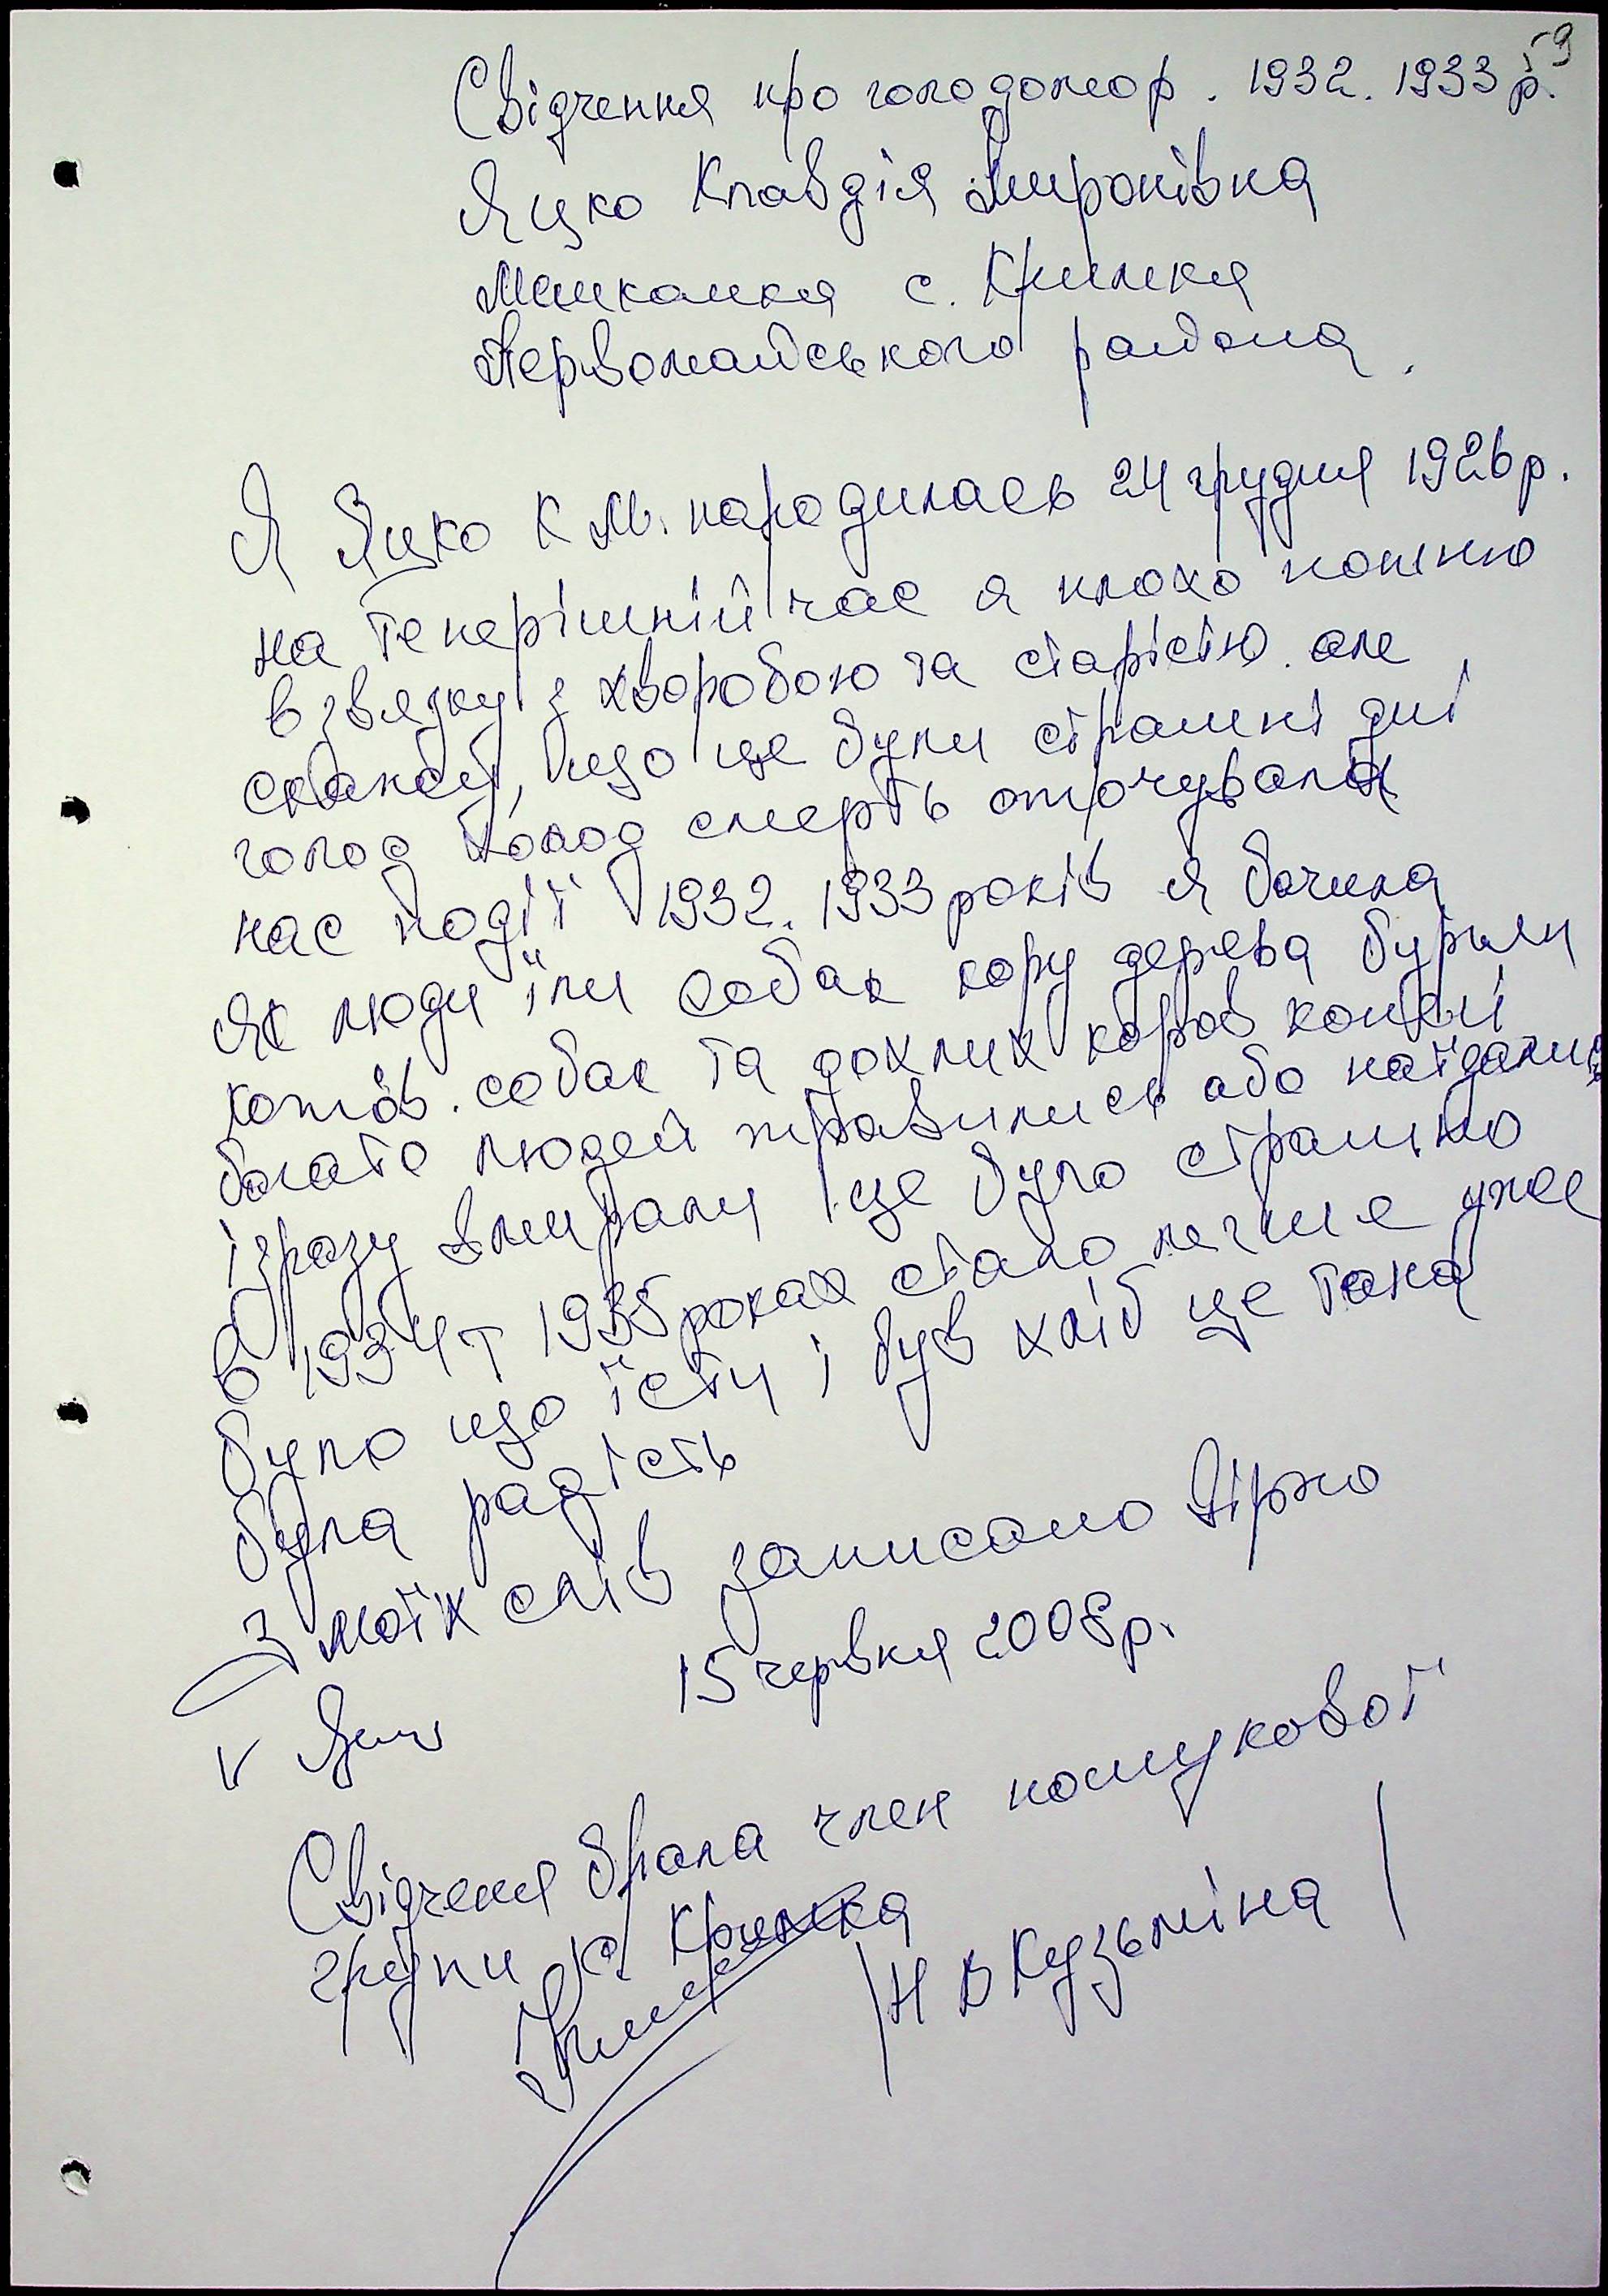 59
Свідчення про голодомор. 1932. 1933 р.
Яцко Клавдія Миронівна
Мешканка с. Кримка
Первомайського района.
Я Яцко К М. народилась 24 грудня 1926 р.
на теперішній час я плохо помню
в звязку з хворобою та старістю. але
скажу, що це були страшні дні
голод холод смерть оточувала
нас події 1932. 1933 років я бачила
як люди їли собак кору дерева
котов. собак та дохлих коров коней
багато людей травились або наїдались
і зразу вмирали це було страшно
в 1934 т 1935 роках стало легше уже
було що їсти і був хліб це така
була радість
З моїх слів записано вірно
15 червня 2008 р.
V Яцко
Свідченя брала член пошукової
групи с. Кримка
/Н В Кузьміна/